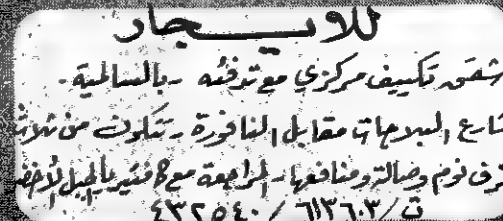 للايجار
شقق تكييف مركزي مع تدفئه - بالسالمية -
شارع البلاجات مقابل النافورة - تتكون من ثلاث
غرف نوم وصالة ومنافعها - المراجعة مع بالجبل الأخضر
ت / ٦١١٣٦٠٣ / ٤٣٢٥٤٠